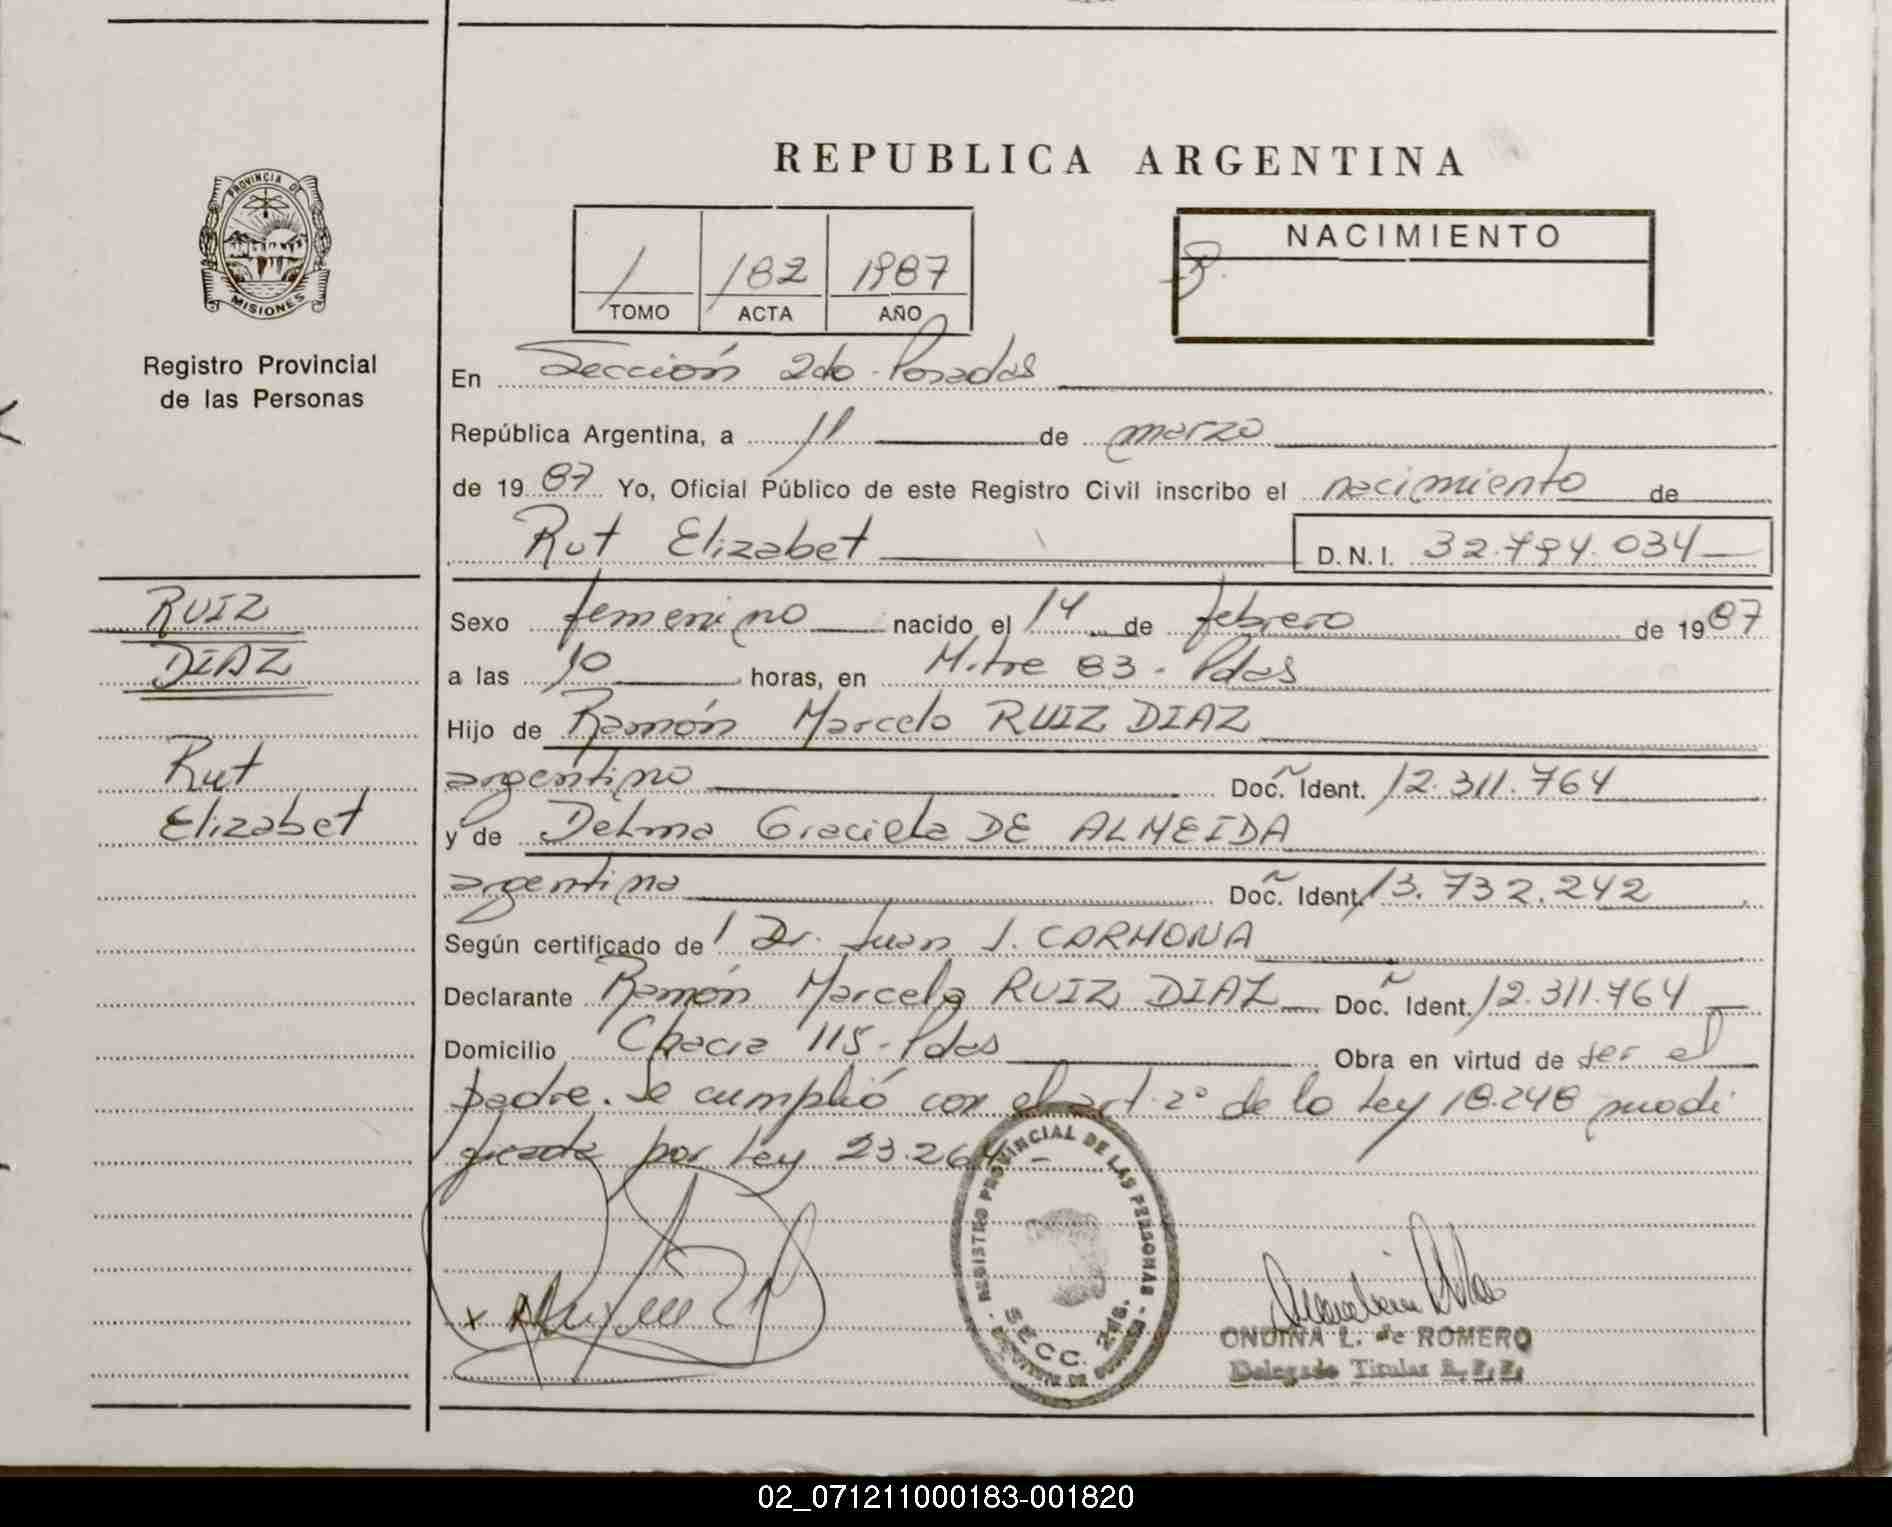 REPUBLICA ARGENTINA
PROVINCIA DE
MISIONES
Registro Provincial
de las Personas
1 182 1987
TOMO ACTA AÑO
NACIMIENTO
En Sección 2do - Posadas
República Argentina, a 11 de marzo
de 1987 Yo, Oficial Público de este Registro Civil inscribo el nacimiento de
Rut Elizabet D.N.I. 32.794.034
RUIZ
DIAZ
Rut
Elizabet
Sexo femenino nacido el 14 de febrero de 1987
a las 10 horas, en Mitre 83 - Pdas
Hijo de Ramón Marcelo RUIZ DIAZ
argentino Doc. Ident. 12.311.764
y de Delma Graciela DE ALMEIDA
argentina Doc. Ident. 13.732.242
Según certificado de Dr. Juan J. CARMONA
Declarante Ramón Marcelo RUIZ DIAZ Doc. Ident. 12.311.764
Domicilio 115 - Pdas Obra en virtud de ser el
padre. Se cumplió con el art. 2° de la Ley 18.248 modi
ficada por Ley 23.264 -
REGISTRO PROVINCIAL DE LAS PERSONAS
SECC. 2da.
ONDINA L. de ROMERO
Delegado Titular
02_071211000183-001820